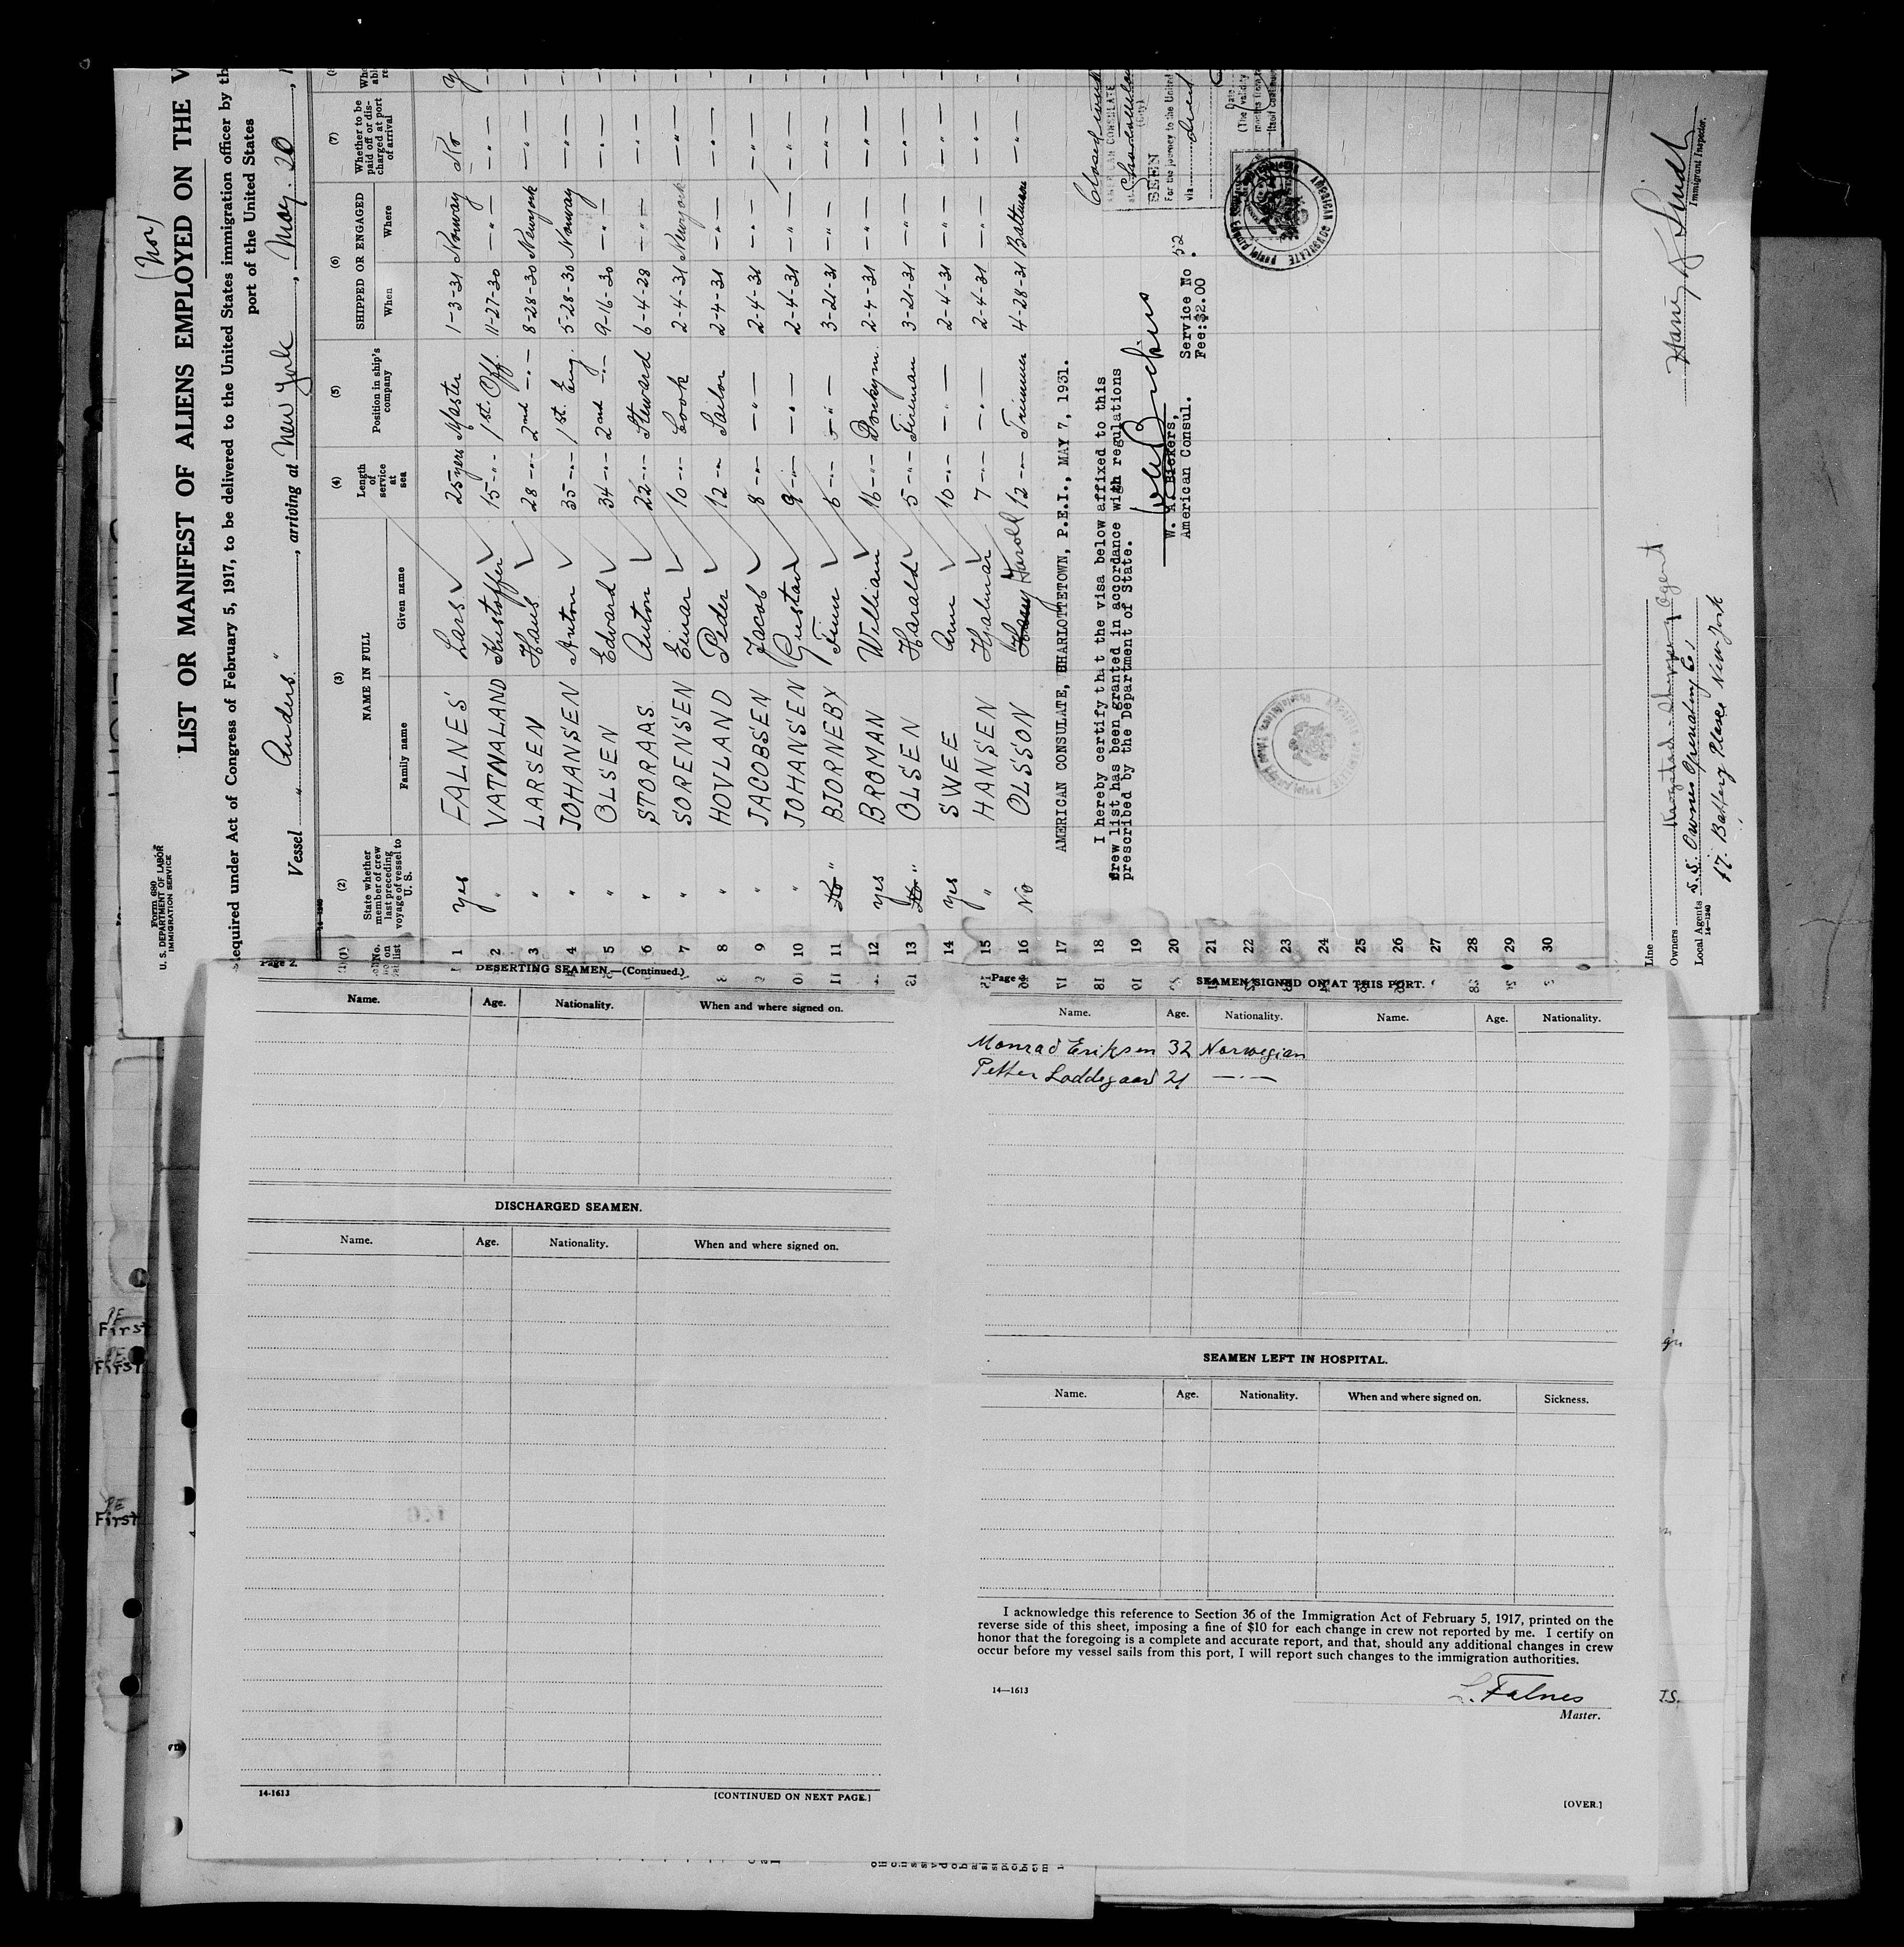 (Nor)
Form 680
U. S. DEPARTMENT OF LABOR
IMMIGRATION SERVICE
LIST OR MANIFEST OF ALIENS EMPLOYED ON THE V
Required under Act of Congress of February 5, 1917, to be delivered to the United States immigration officer by th
port of the United States
Vessel " Anders " , arriving at New York , May. 20 ,
(1) (2) (3) (4) (5) (6) (7)
No. on list State whether member of crew last preceding voyage of vessel to U. S. NAME IN FULL Length of service at sea Position in ship's company SHIPPED OR ENGAGED Whether to be paid off or discharged at port of arrival
Family name Given name When Where
1 yes FALNES Lars ✓ 25 yers Master 1-3-31 Norway No
2 " VATNALAND Kristoffer ✓ 15 -"- 1st. Off. 11-27-30 -"- -"-
3 " LARSEN Hans ✓ 28 -"- 2nd -"- 8-28-30 Newyork -"-
4 " JOHANSEN Anton ✓ 35 -"- 1st. Eng. 5-28-30 Norway -"-
5 " OLSEN Edvard ✓ 34 -"- 2nd -"- 9-16-30 -"- -"-
6 " STORAAS Anton ✓ 22 -"- Steward 6-4-28 -"- -"-
7 " SORENSEN Einar ✓ 10 -"- Cook 2-4-31 Newyork -"-
8 " HOVLAND Peder ✓ 12 -"- Sailor 2-4-31 -"- -"-
9 " JACOBSEN Jacob ✓ 8 -"- -"- 2-4-31 -"- -"-
10 " JOHANSEN Gustav ✓ 9 -"- -"- 2-4-31 -"- -"-
11 No " BJORNEBY Finn ✓ 6 -"- -"- 3-21-31 -"- -"-
12 yes BROMAN William ✓ 16 -"- Donkym. 2-4-31 -"- -"-
13 No " OLSEN Harald ✓ 5 -"- Fireman 3-21-31 -"- -"-
14 yes SWEE ✓ 10 -"- -"- 2-4-31 -"- -"-
15 " HANSEN Hjalmar ✓ 7 -"- -"- 2-4-31 -"- -"-
16 No OLSSON Harold 12 -"- Trimmer 4-28-31 Baltimore -"-
17
18
19
20
21
22
23
24
25
26
27
28
29
30
AMERICAN CONSULATE, CHARLOTTETOWN, P.E.I., MAY 7, 1931.
I hereby certify that the visa below affixed to this
crew list has been granted in accordance with regulations
prescribed by the Department of State.
W. A. Bickers,
American Consul.
Service No. 52
Fee: $2.00
SEEN
For the journey to the United
via direct
AMERICAN CONSULATE
Line
Owners
Local Agents S.S. Owners Operating Co,
17. Battery Place New York
14—1240
Immigrant Inspector.
Page 2.
DESERTING SEAMEN.—(Continued.)
Name. Age. Nationality. When and where signed on.
DISCHARGED SEAMEN.
Name. Age. Nationality. When and where signed on.
14-1613
[CONTINUED ON NEXT PAGE.]
Page
SEAMEN SIGNED ON AT THIS PORT.
Name. Age. Nationality. Name. Age. Nationality.
Monrad Eriksen 32 Norwegian
Petter Loddegaard 21 -"-
SEAMEN LEFT IN HOSPITAL.
Name. Age. Nationality. When and where signed on. Sickness.
I acknowledge this reference to Section 36 of the Immigration Act of February 5, 1917, printed on the
reverse side of this sheet, imposing a fine of $10 for each change in crew not reported by me. I certify on
honor that the foregoing is a complete and accurate report, and that, should any additional changes in crew
occur before my vessel sails from this port, I will report such changes to the immigration authorities.
14—1613
L. Falnes
Master.
[OVER.]
PE
First
PE
First
PE
First